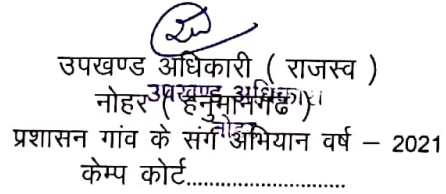 उपखण्ड अधिकारी ( राजस्व )
नोहर ( हनुमानगढ )
उपखण्ड अधिकारी
नोहर
प्रशासन गांव के संग अभियान वर्ष – 2021
केम्प कोर्ट...........................